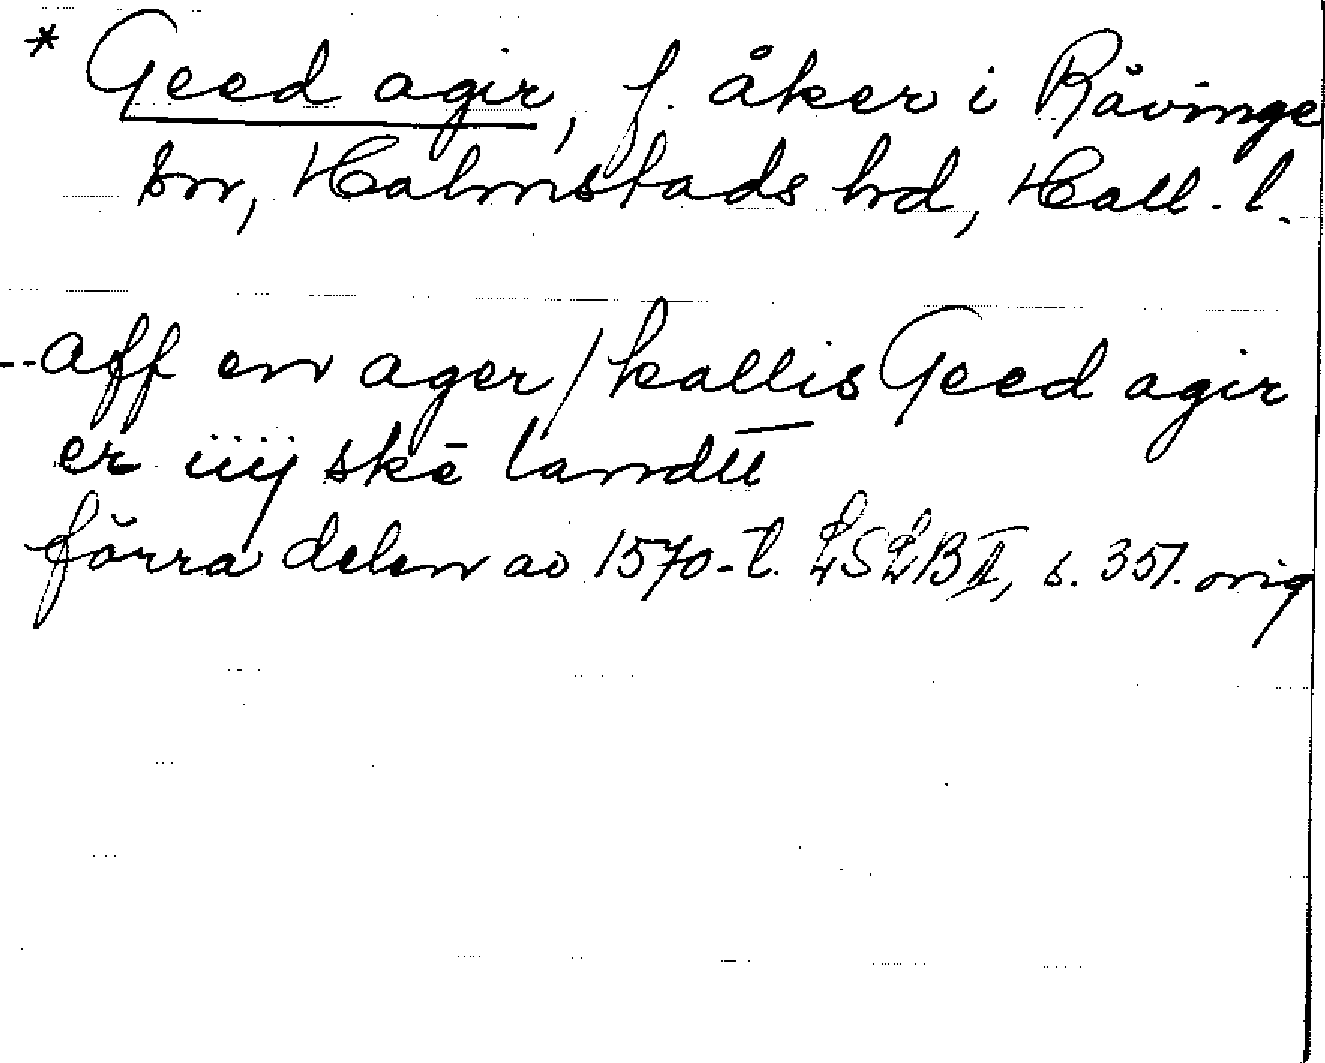 * Geed agir, f. åker i Råvinge
sn, Halmstads hd, Hall. l.
--aff en ager / kallis Geed agir
er iiij skē landtt
förra delen av 1570-t. LSLB II, s. 351. orig